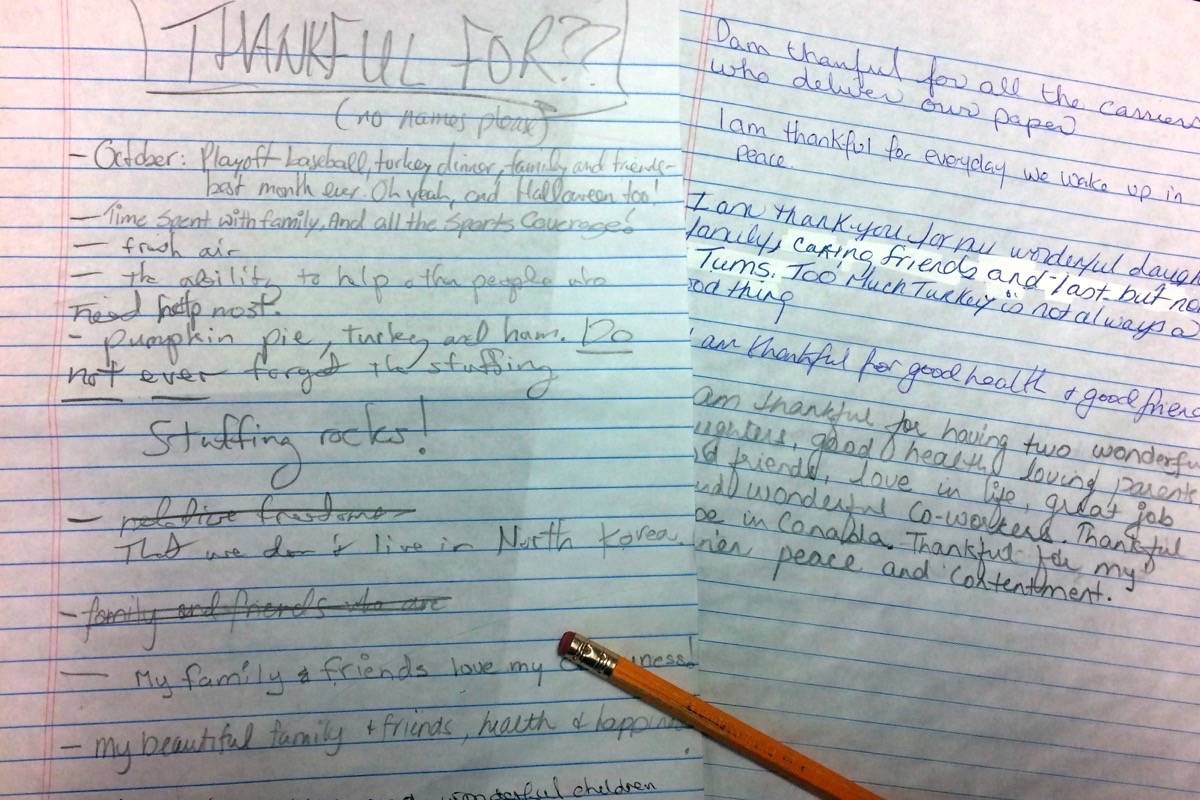 THANKFUL FOR??
(no names please)
- October: Playoff baseball, turkey dinner, family and friends-
best month ever. Oh yeah, and Halloween too!
- Time spent with family. And all the Sports Coverage!
- fresh air
- the ability to help other people who
need help most.
- pumpkin pie, turkey and ham. Do
not ever forget the stuffing
Stuffing rocks!
- relative freedoms
That we don't live in North Korea
- family and friends who are
- My family & friends love my
- my beautiful family & friends, health & happiness
wonderful children
I am thanful for all the carriers
who deliver our paper
I am thankful for everyday we wake up in
peace
I am thank-you for my wonderful
family, caring friends and last but
Tums. Too Much Turkey is not always a
thing
am thankful for good health & good
am thankful for having two wonderful
good health loving parents
friends, love in life, great job
wonderful co-workers. Thankful
in Canada. Thankful for my
peace and contentment.